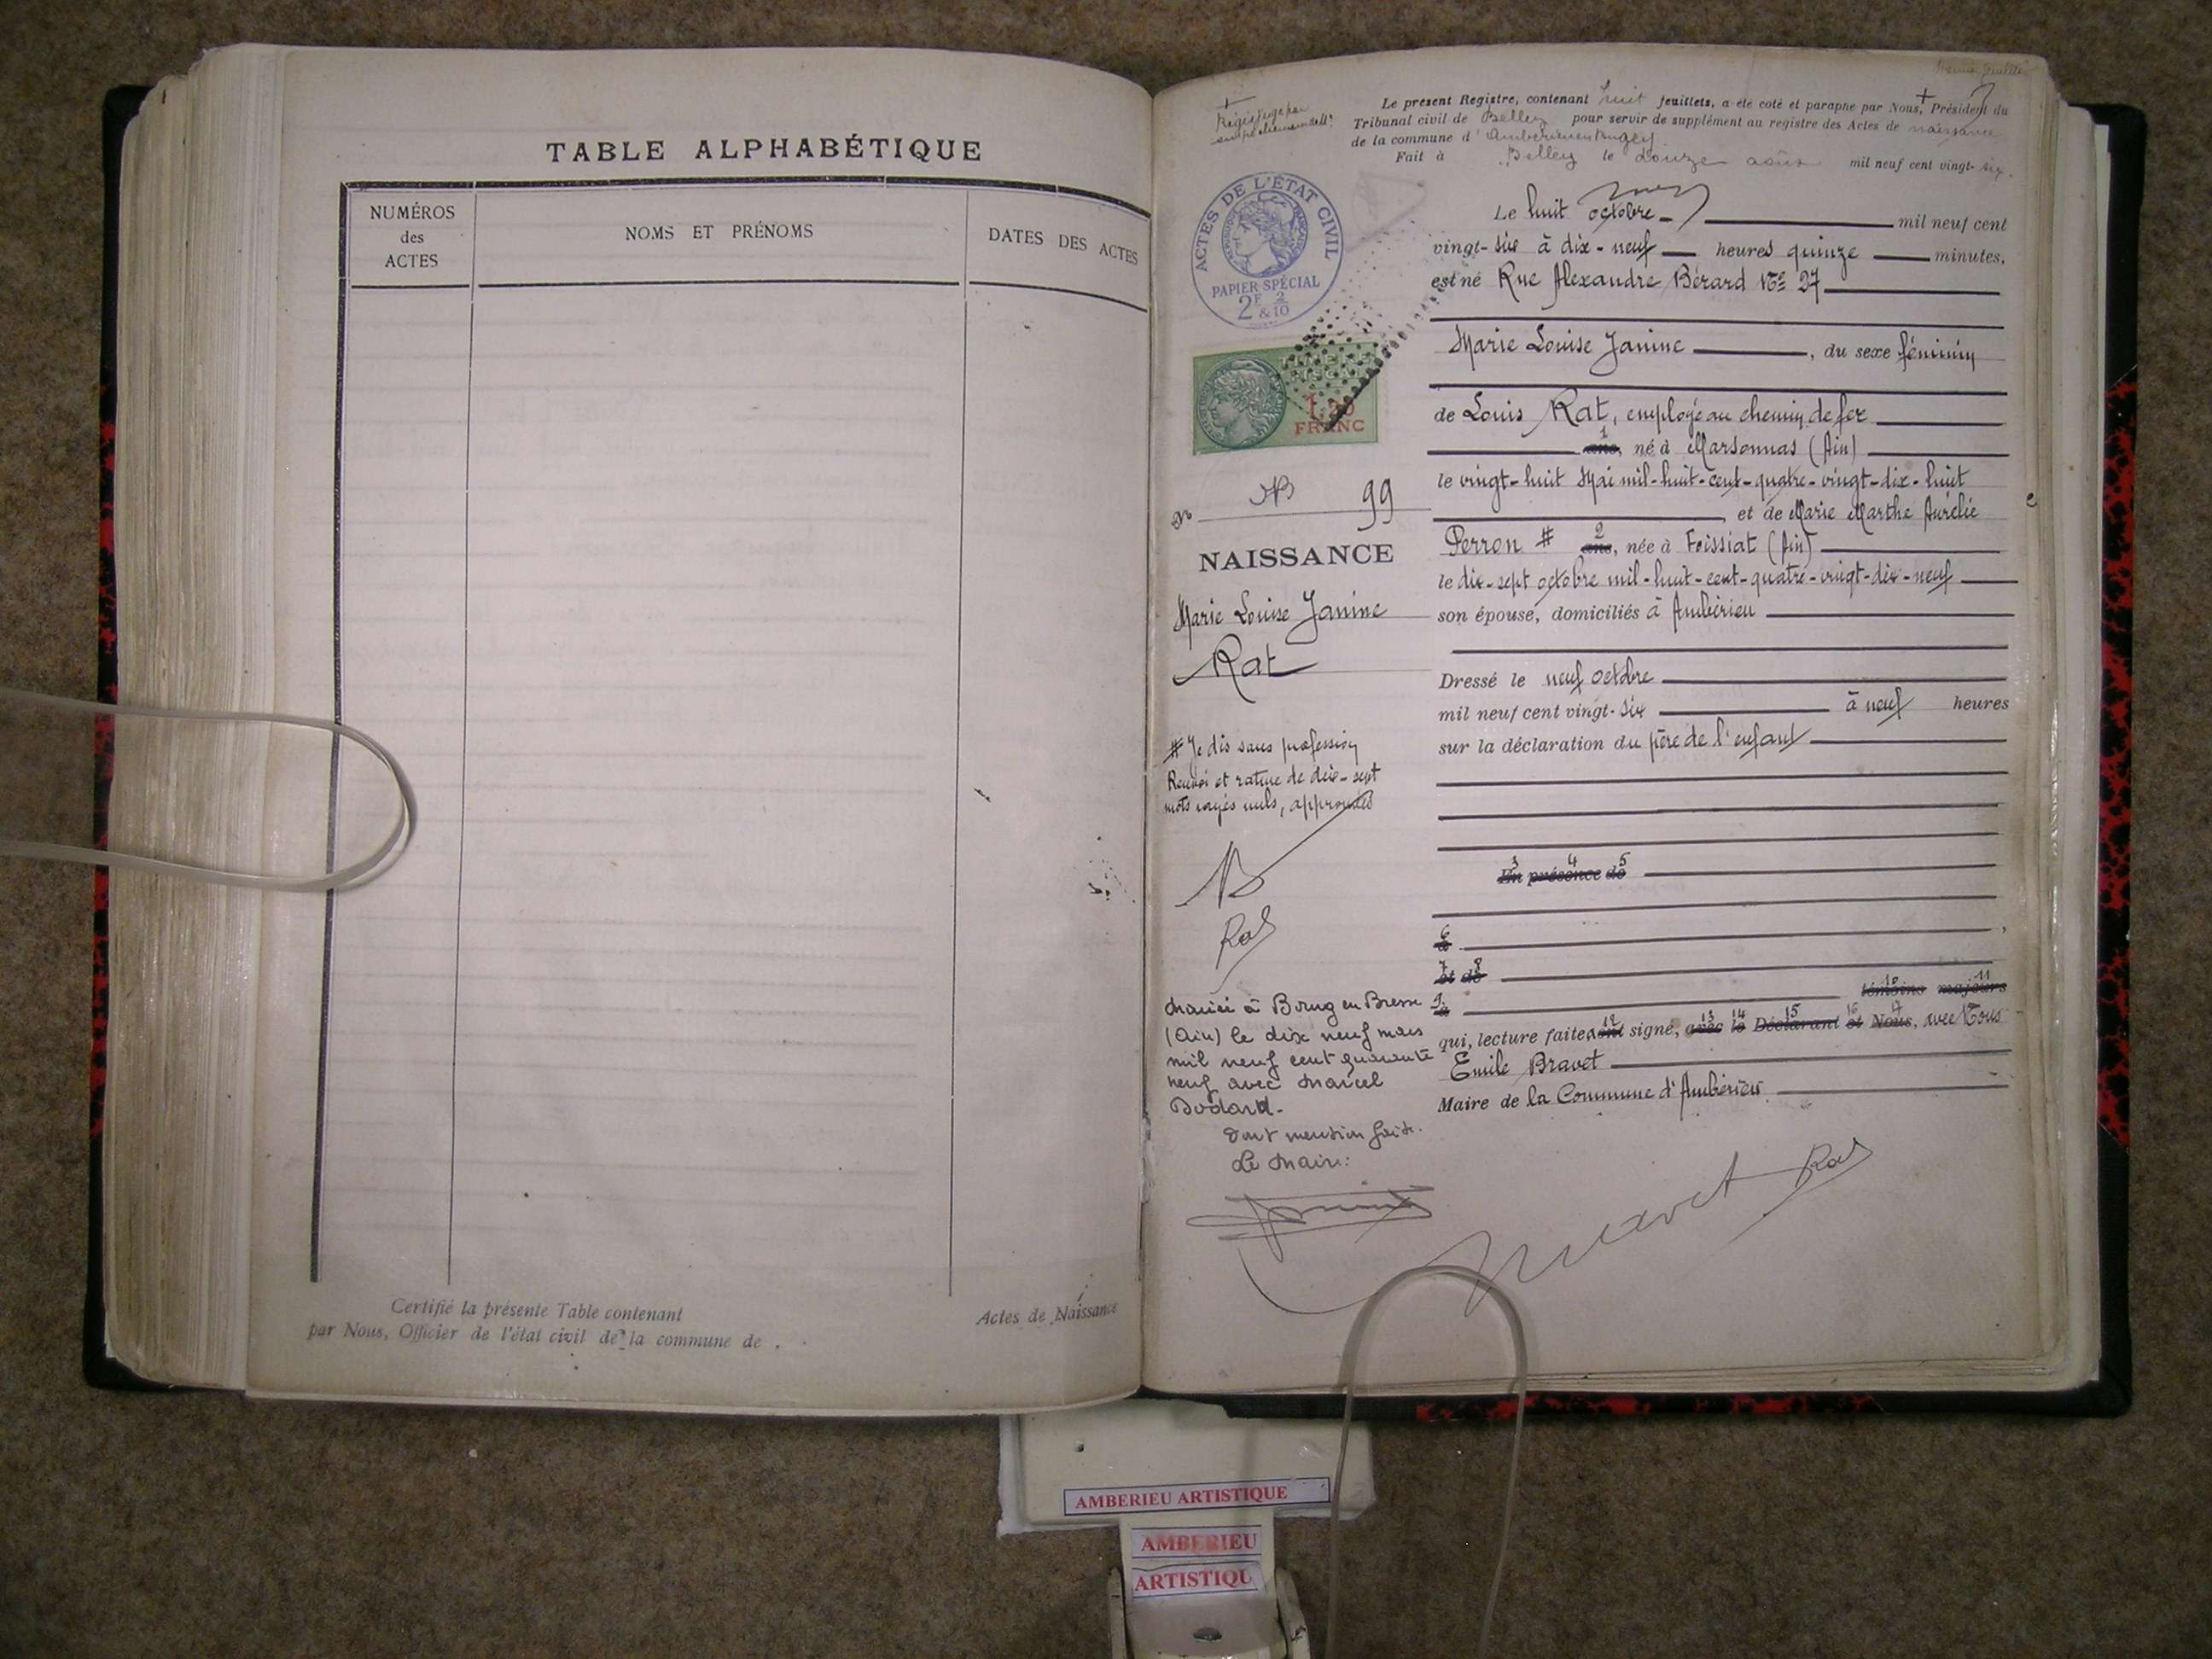 TABLE ALPHABÉTIQUE
NUMÉROS
des
ACTES
NOMS ET PRÉNOMS
DATES DES ACTES
Certifié la présente Table contenant
Actes de Naissance
par Nous, Officier de l'état civil de la commune de .
Le présent Registre, contenant huit feuillets, a été coté et paraphé par Nous, Président du
Tribunal civil de Belley pour servir de supplément au registre des Actes de naissance
de la commune d'Ambérieu en Bugey
Fait à Belley le douze août mil neuf cent vingt-six.
ACTES DE L'ÉTAT CIVIL
PAPIER SPÉCIAL
2F 2
& 10
TIMBRE
FISCAL
1.20
FRANC
No 99
NAISSANCE
Marie Louise Janine
Rat
# Je dis sans profession
Renvoi et rature de dix-sept
mots rayés nuls, approuvés
B
Rat
Mariée à Bourg en Bresse
(Ain) le dix neuf mars
mil neuf cent quarante
neuf avec Marcel
Dodard.
Dont mention faite.
Le Maire:
Le huit octobre mil neuf cent
vingt-six à dix-neuf heures quinze minutes,
est né Rue Alexandre Bérard No 27
Marie Louise Janine, du sexe féminin
de Louis Rat, employé au chemin de fer
1 ans, né à Marsonnas (Ain)
le vingt-huit Mai mil-huit-cent-quatre-vingt-dix-huit
et de Marie Marthe Aurélie
Perron # 2 ans, née à Foissiat (Ain)
le dix-sept octobre mil-huit-cent-quatre-vingt-dix-neuf
son épouse, domiciliés à Ambérieu
Dressé le neuf octobre
mil neuf cent vingt-six à neuf heures
sur la déclaration du père de l'enfant
3 4 5
En présence de
6
à
7 8
et de
9 10 11
à témoins majeurs
12 13 14 15 16 17
qui, lecture faite, ont signé, avec le Déclarant et Nous, avec Nous
Emile Bravet
Maire de la Commune d'Ambérieu
Bravet Rat
AMBERIEU ARTISTIQUE
AMBERIEU
ARTISTIQU